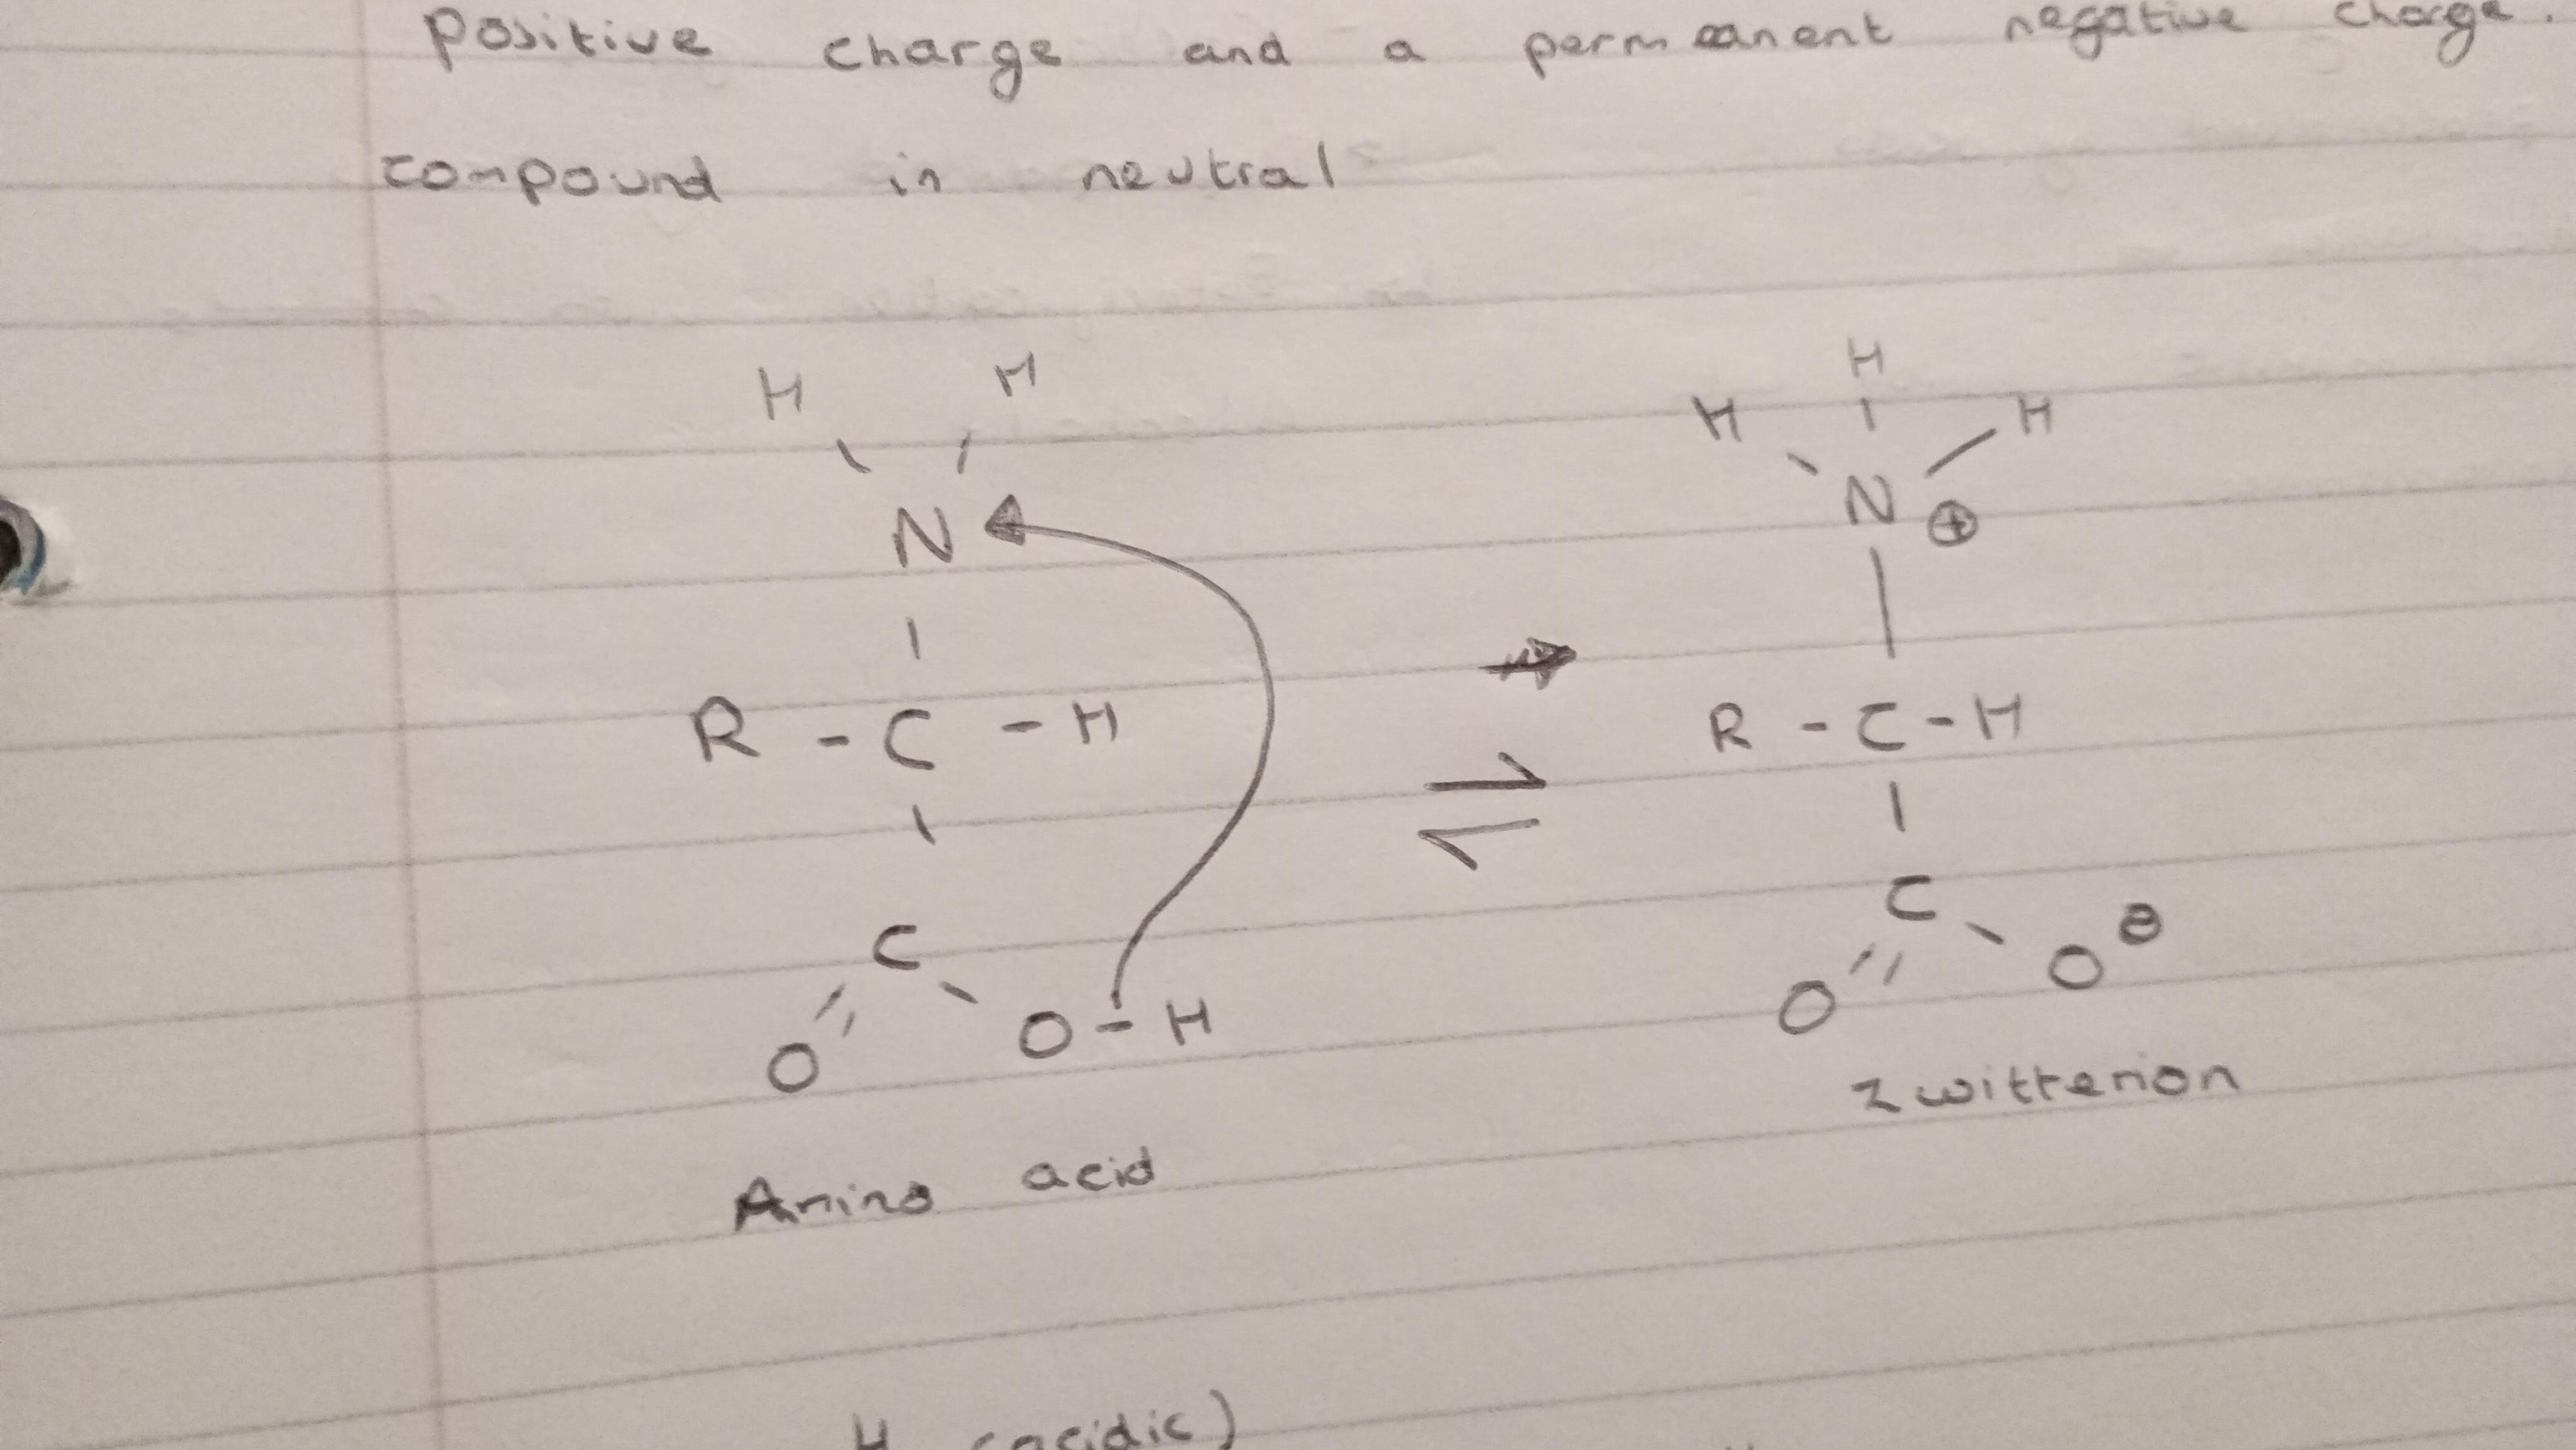 positive charge and a permanent negative charge.
compound in neutral
H H H
H H
N N ⊕
R - C - H R - C - H
C C
O O - H O O ⊖
zwitterion
Amino acid
H (acidic)